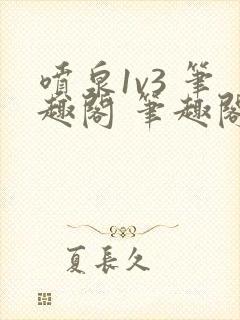 噴泉1v3 筆
趣閣 筆趣閣
夏長久